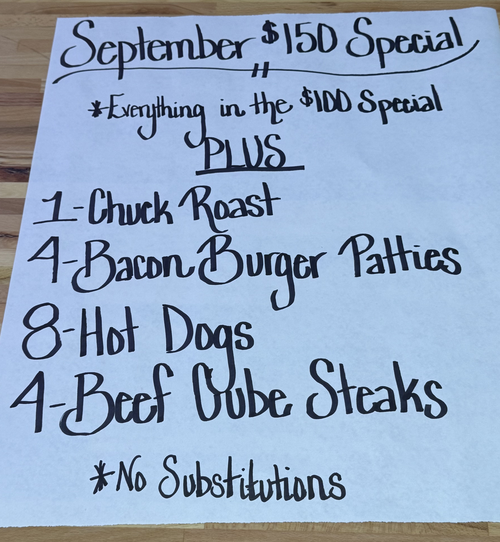 September $150 Special
*Everything in the $100 Special
PLUS
1-Chuck Roast
4-Bacon Burger Patties
8-Hot Dogs
4-Beef Cube Steaks
*No Substitutions